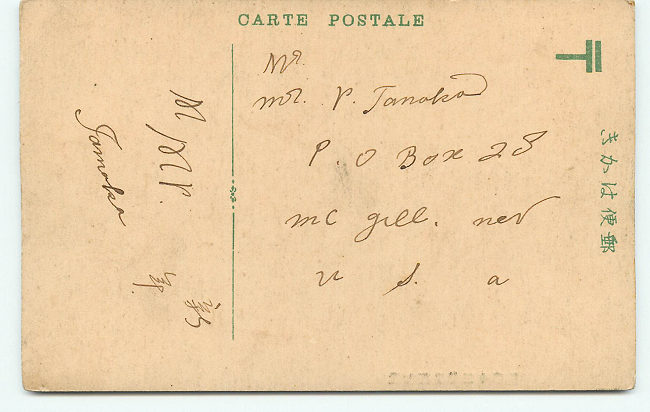 CARTE POSTALE
Mr.
mr. P. Tanaka
P. O Box 28
mc gill. nev
U S. a
郵便はかき
Tanaka